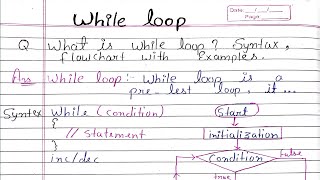 While loop
Date: __/__/__
Page ____
Q What is while loop? Syntax,
flowchart with Examples.
Ans While loop:- While loop is a
pre-test loop, it...
Syntex While (condition) Start
{
// Statement initialization
}
inc/dec Condition False
true